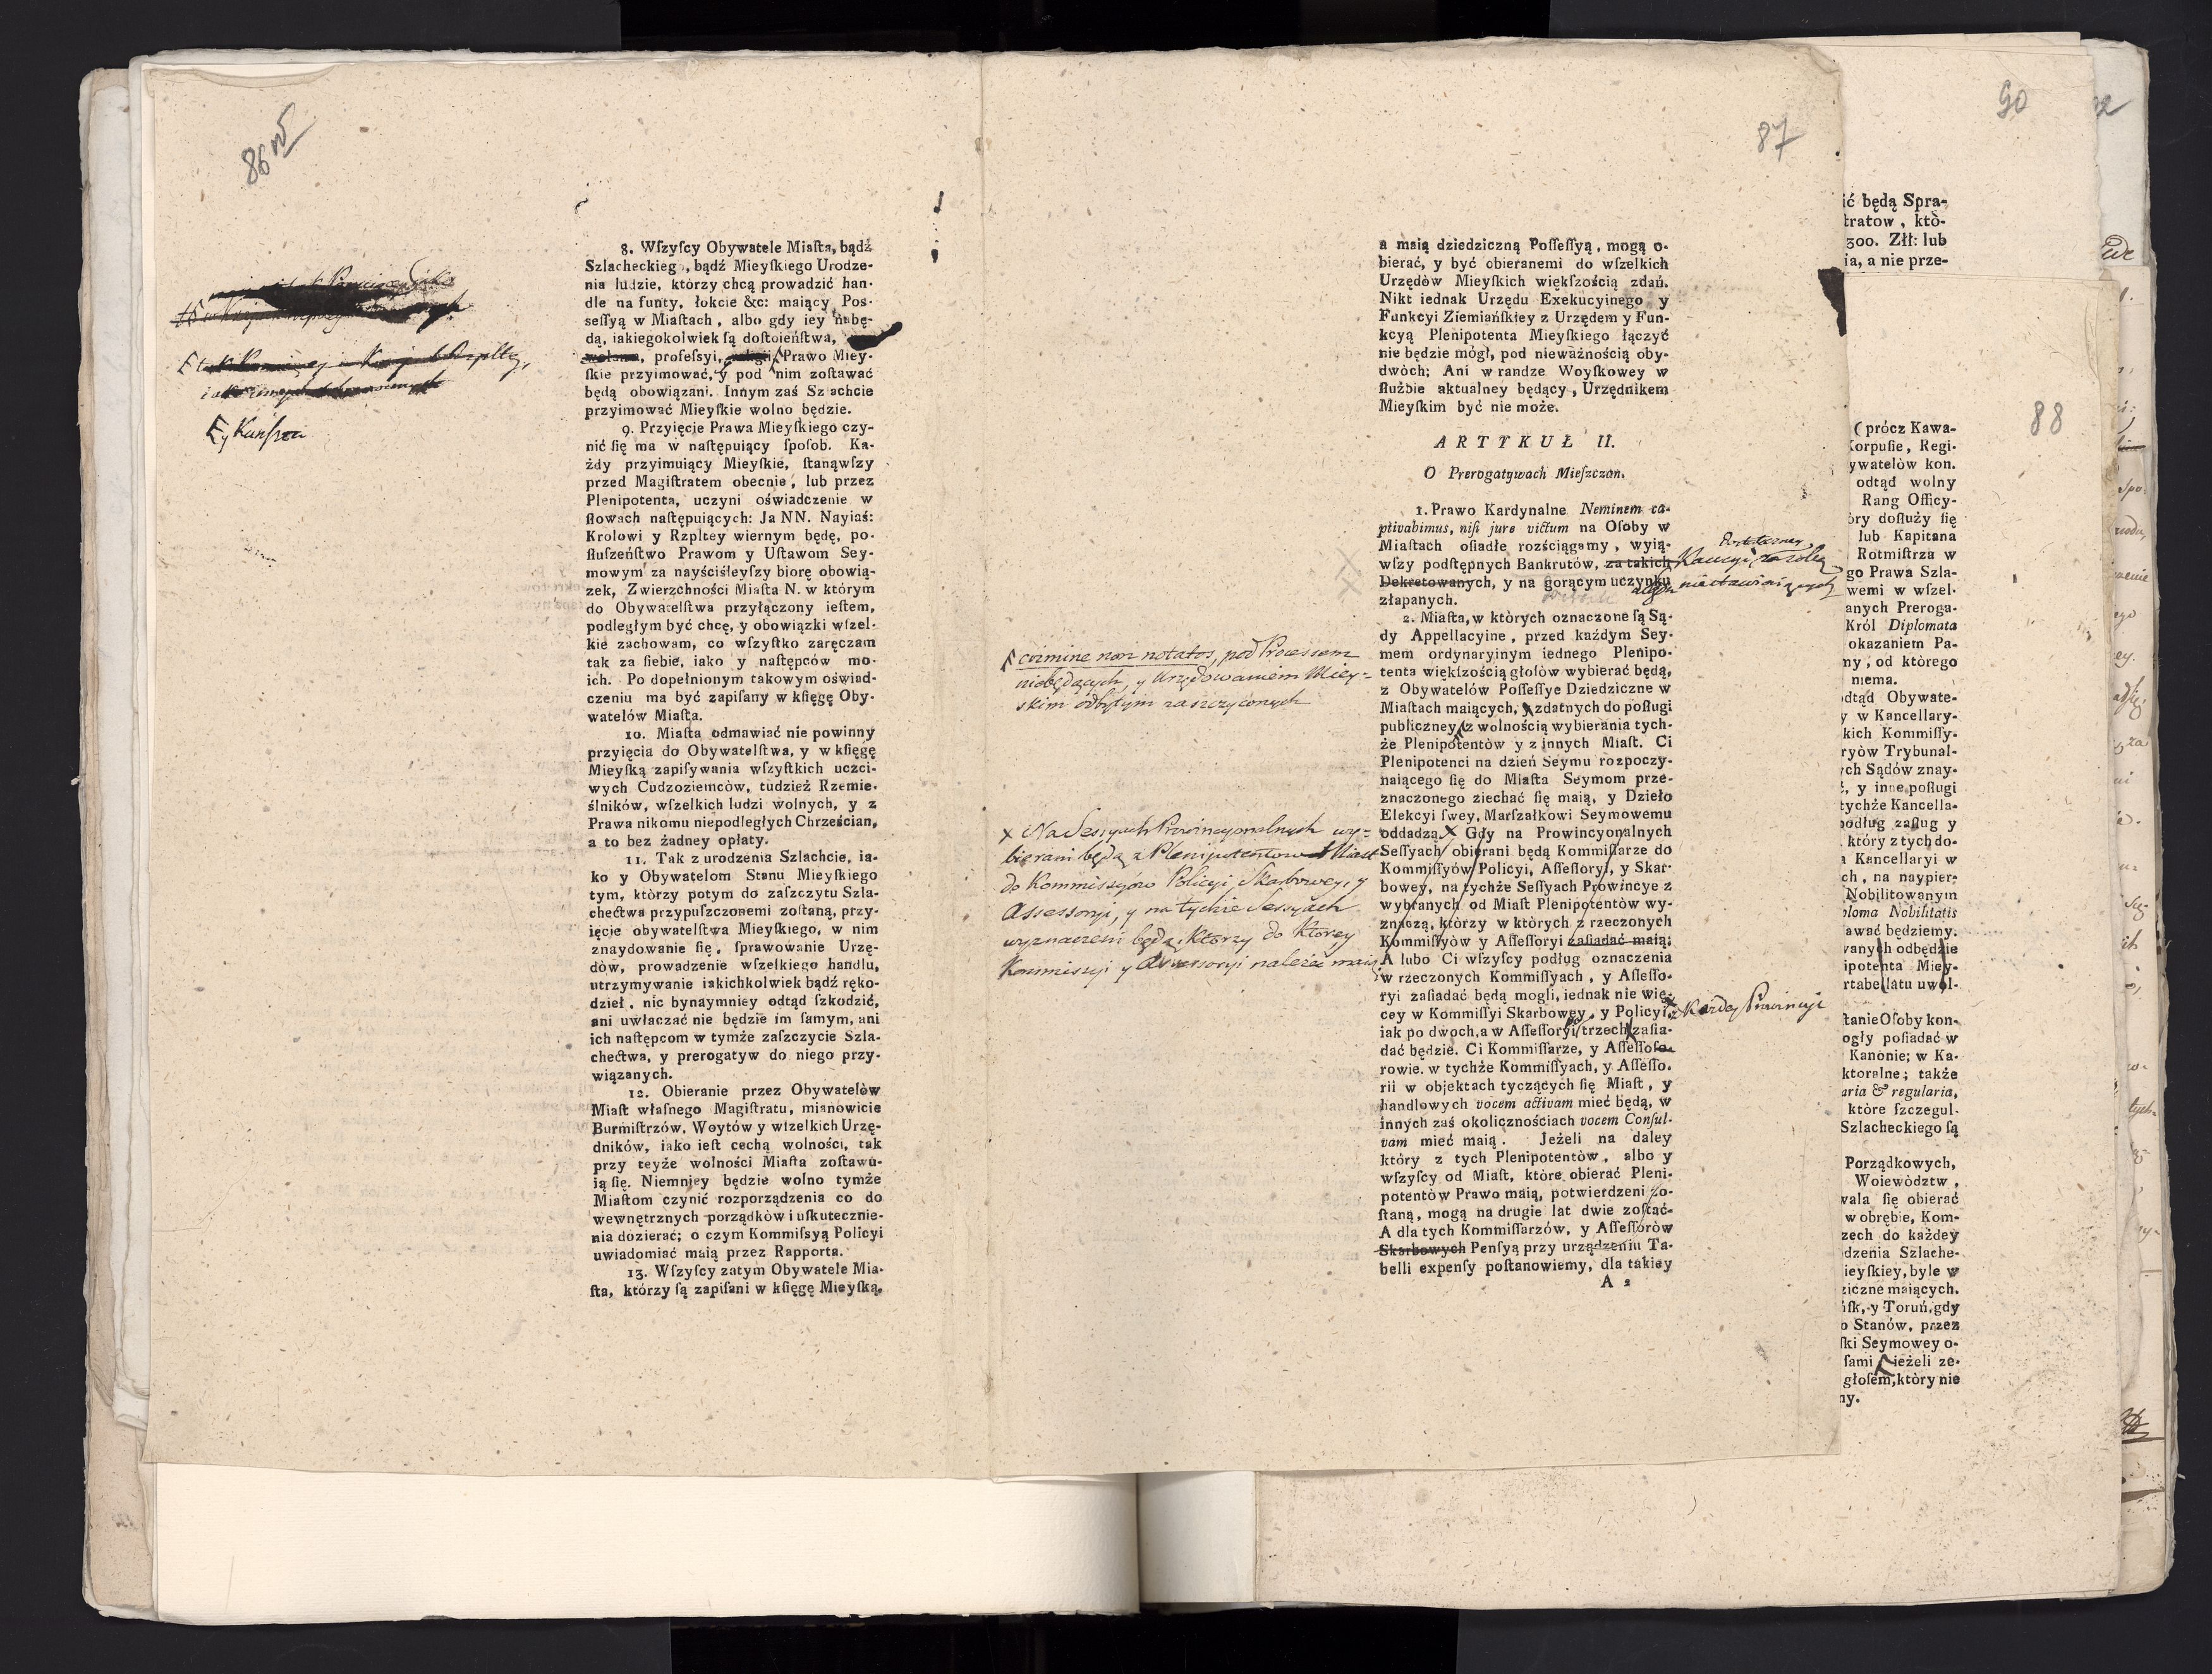 86 v
8. Wſzyſcy Obywatele Miaſta, bądź
Szlacheckiego, bądź Mieyſkiego Urodze-
nia ludzie, którzy chcą prowadzić han-
dle na funty, łokcie &c: maiący Pos-
seſſyą w Miaſtach, albo gdy iey nabę-
dą, iakiegokolwiek ſą doſtoieńſtwa,
profeſsyi, Prawo Miey-
ſkie przyimować, y pod nim zoſtawać
będą obowiązani. Innym zaś Szlachcie
przyimować Mieyſkie wolno będzie.
9. Przyięcie Prawa Mieyſkiego czy-
nić ſię ma w naſtępuiący ſpoſob. Ka-
żdy przyimuiący Mieyſkie, ſtanąwſzy
przed Magiſtratem obecnie, lub przez
Plenipotenta, uczyni oświadczenie w
ſłowach naſtępuiących: Ja NN. Nayiaś:
Krolowi y Rzpltey wiernym będę, po-
ſłuſzeńſtwo Prawom y Uſtawom Sey-
mowym za nayściśleyſzy biorę obowią-
zek, Zwierzchności Miaſta N. w którym
do Obywatelſtwa przyłączony ieſtem,
podległym być chcę, y obowiązki wſzel-
kie zachowam, co wſzyſtko zaręczam
tak za ſiebie, iako y naſtępców mo-
ich. Po dopełnionym takowym oświad-
czeniu ma być zapiſany w kſięgę Oby-
watelów Miaſta.
10. Miaſta odmawiać nie powinny
przyięcia do Obywatelſtwa, y w kſięgę
Mieyſką zapiſywania wſzyſtkich uczci-
wych Cudzoziemców, tudzież Rzemie-
ślników, wſzelkich ludzi wolnych, y z
Prawa nikomu niepodległych Chrześcian,
a to bez żadney opłaty.
11. Tak z urodzenia Szlachcie, ia-
ko y Obywatelom Stanu Mieyſkiego
tym, którzy potym do zaſzczytu Szla-
chectwa przypuſzczonemi zoſtaną, przy-
ięcie obywatelſtwa Mieyſkiego, w nim
znaydowanie ſię, ſprawowanie Urzę-
dów, prowadzenie wſzelkiego handlu,
utrzymywanie iakichkolwiek bądź ręko-
dzieł, nic bynaymniey odtąd ſzkodzić,
ani uwłaczać nie będzie im ſamym, ani
ich naſtępcom w tymże zaſzczycie Szla-
chectwa, y prerogatyw do niego przy-
wiązanych.
12. Obieranie przez Obywatelów
Miaſt właſnego Magiſtratu, mianowicie
Burmiſtrzów, Woytów y wſzelkich Urzę-
dników, iako ieſt cechą wolności, tak
przy teyże wolności Miaſta zoſtawu-
ią ſię. Niemniey będzie wolno tymże
Miaſtom czynić rozporządzenia co do
wewnętrznych porządków i uſkutecznie-
nia dozierać; o czym Kommiſsyą Policyi
uwiadomiać maią przez Rapporta.
13. Wſzyſcy zatym Obywatele Mia-
ſta, którzy ſą zapiſani w kſięgę Mieyſką,
87
a maią dziedziczną Poſſeſſyą, mogą o-
bierać, y być obieranemi do wſzelkich
Urzędów Mieyſkich więkſzością zdań.
Nikt iednak Urzędu Exekucyinego y
Funkcyi Ziemiańſkiey z Urzędem y Fun-
kcyą Plenipotenta Mieyſkiego łączyć
nie będzie mógł, pod nieważnością oby-
dwóch; Ani w randze Woyſkowey w
ſłużbie aktualney będący, Urzędnikem
Mieyſkim być nie może.
ARTYKUŁ II.
O Prerogatywach Mieſzczan.
1. Prawo Kardynalne Neminem ca-
ptivabimus, niſi jure victum na Oſoby w
Miaſtach oſiadłe rozściągamy, wyią-
wſzy podſtępnych Bankrutów, za takich
Dekretowanych, y na gorącym uczynku
złapanych.
2. Miaſta, w których oznaczone ſą Są-
dy Appellacyine, przed każdym Sey-
mem ordynaryinym iednego Plenipo-
tenta więkſzością głoſów wybierać będą,
z Obywatelów Poſſeſſye Dziedziczne w
Miaſtach maiących, y zdatnych do poſługi
publiczney z wolnością wybierania tych-
że Plenipotentów y z innych Miaſt. Ci
Plenipotenci na dzień Seymu rozpoczy-
naiącego ſię do Miaſta Seymom prze-
znaczonego ziechać ſię maią, y Dzieło
Elekcyi ſwey, Marſzałkowi Seymowemu
oddadzą. Gdy na Prowincyonalnych
Seſſyach obierani będą Kommiſſarze do
Kommiſſyów Policyi, Aſſeſſoryi, y Skar-
bowey, na tychże Seſſyach Prowincye z
wybranych od Miaſt Plenipotentów wy-
znaczą, którzy w których z rzeczonych
Kommiſſyów y Aſſeſſoryi zaſiadać maią;
A lubo Ci wſzyſcy podług oznaczenia
w rzeczonych Kommiſſyach, y Aſſeſſo-
ryi zaſiadać będą mogli, iednak nie wię-
cey w Kommiſſyi Skarbowey, y Policyi,
iak po dwoch, a w Aſſeſſoryi trzech zaſia-
dać będzie. Ci Kommiſſarze, y Aſſeſſoſo-
rowie w tychże Kommiſſyach, y Aſſeſſo-
rii w objektach tyczących ſię Miaſt, y
handlowych vocem activam mieć będą, w
innych zaś okolicznościach vocem Conſul-
vam mieć maią. Jeżeli na daley
który z tych Plenipotentów, albo y
wſzyſcy od Miaſt, które obierać Pleni-
potentów Prawo maią, potwierdzeni zo-
ſtaną, mogą na drugie lat dwie zoſtać.
A dla tych Kommiſſarzów, y Aſſeſſorów
Skarbowych Penſyą przy urządzeniu Ta-
belli expenſy poſtanowiemy, dla takiey
A 2
y Kunſztu
Kaucyi za sobą
niestawiaiących
crimine non notatos, pod Processem
niebędących, y Urzędowaniem Miey-
skim odbytym zaszczyconych
x Na Sessyach Prowincyonalnych wy-
bierani będą z Plenipotentow Miast
do Kommissyów Policyi, Skarbowey, y
Assessoryi, y na tychże Sessyach
wyznaczeni będą, Którzy do Którey
Kommissyi y Assessoryi należeć maią
z Każdey Prowincyi
90
ić będą Spra-
tratow, któ-
300. Złł: lub
ia, a nie prze-
88
(prócz Kawa-
Korpuſie, Regi-
ywatelów kon.
odtąd wolny
Rang Officy-
óry doſłuży ſię
lub Kapitana
Rotmiſtrza w
go Prawa Szla-
wemi w wſzel-
anych Preroga-
Król Diplomata
okazaniem Pa-
ny, od którego
niema.
odtąd Obywate-
y w Kancellary-
kich Kommiſſy-
ryów Trybunal-
ych Sądów znay-
ć, y inne poſługi
tychże Kancella-
podług zaſług y
który z tych do-
a Kancellaryi w
ch, na naypier-
Nobilitowanym
ploma Nobilitatis
awać będziemy.
wanych odbędzie
ipotenta Miey-
rtabellatu uwol-
tanie Oſoby kon-
ogły poſiadać w
Kanonie; w Ka-
ktoralne; także
aria & regularia,
które ſzczegul-
Szlacheckiego ſą
Porządkowych,
Woiewództw,
wala ſię obierać
w obrębie, Kom-
zech do każdey
dzenia Szlache-
ieyſkiey, byle w
ziczne maiących.
ńſk, y Toruń, gdy
o Stanów, przez
ſki Seymowey o-
ſami ieżeli ze-
głoſem, który nie
ny.